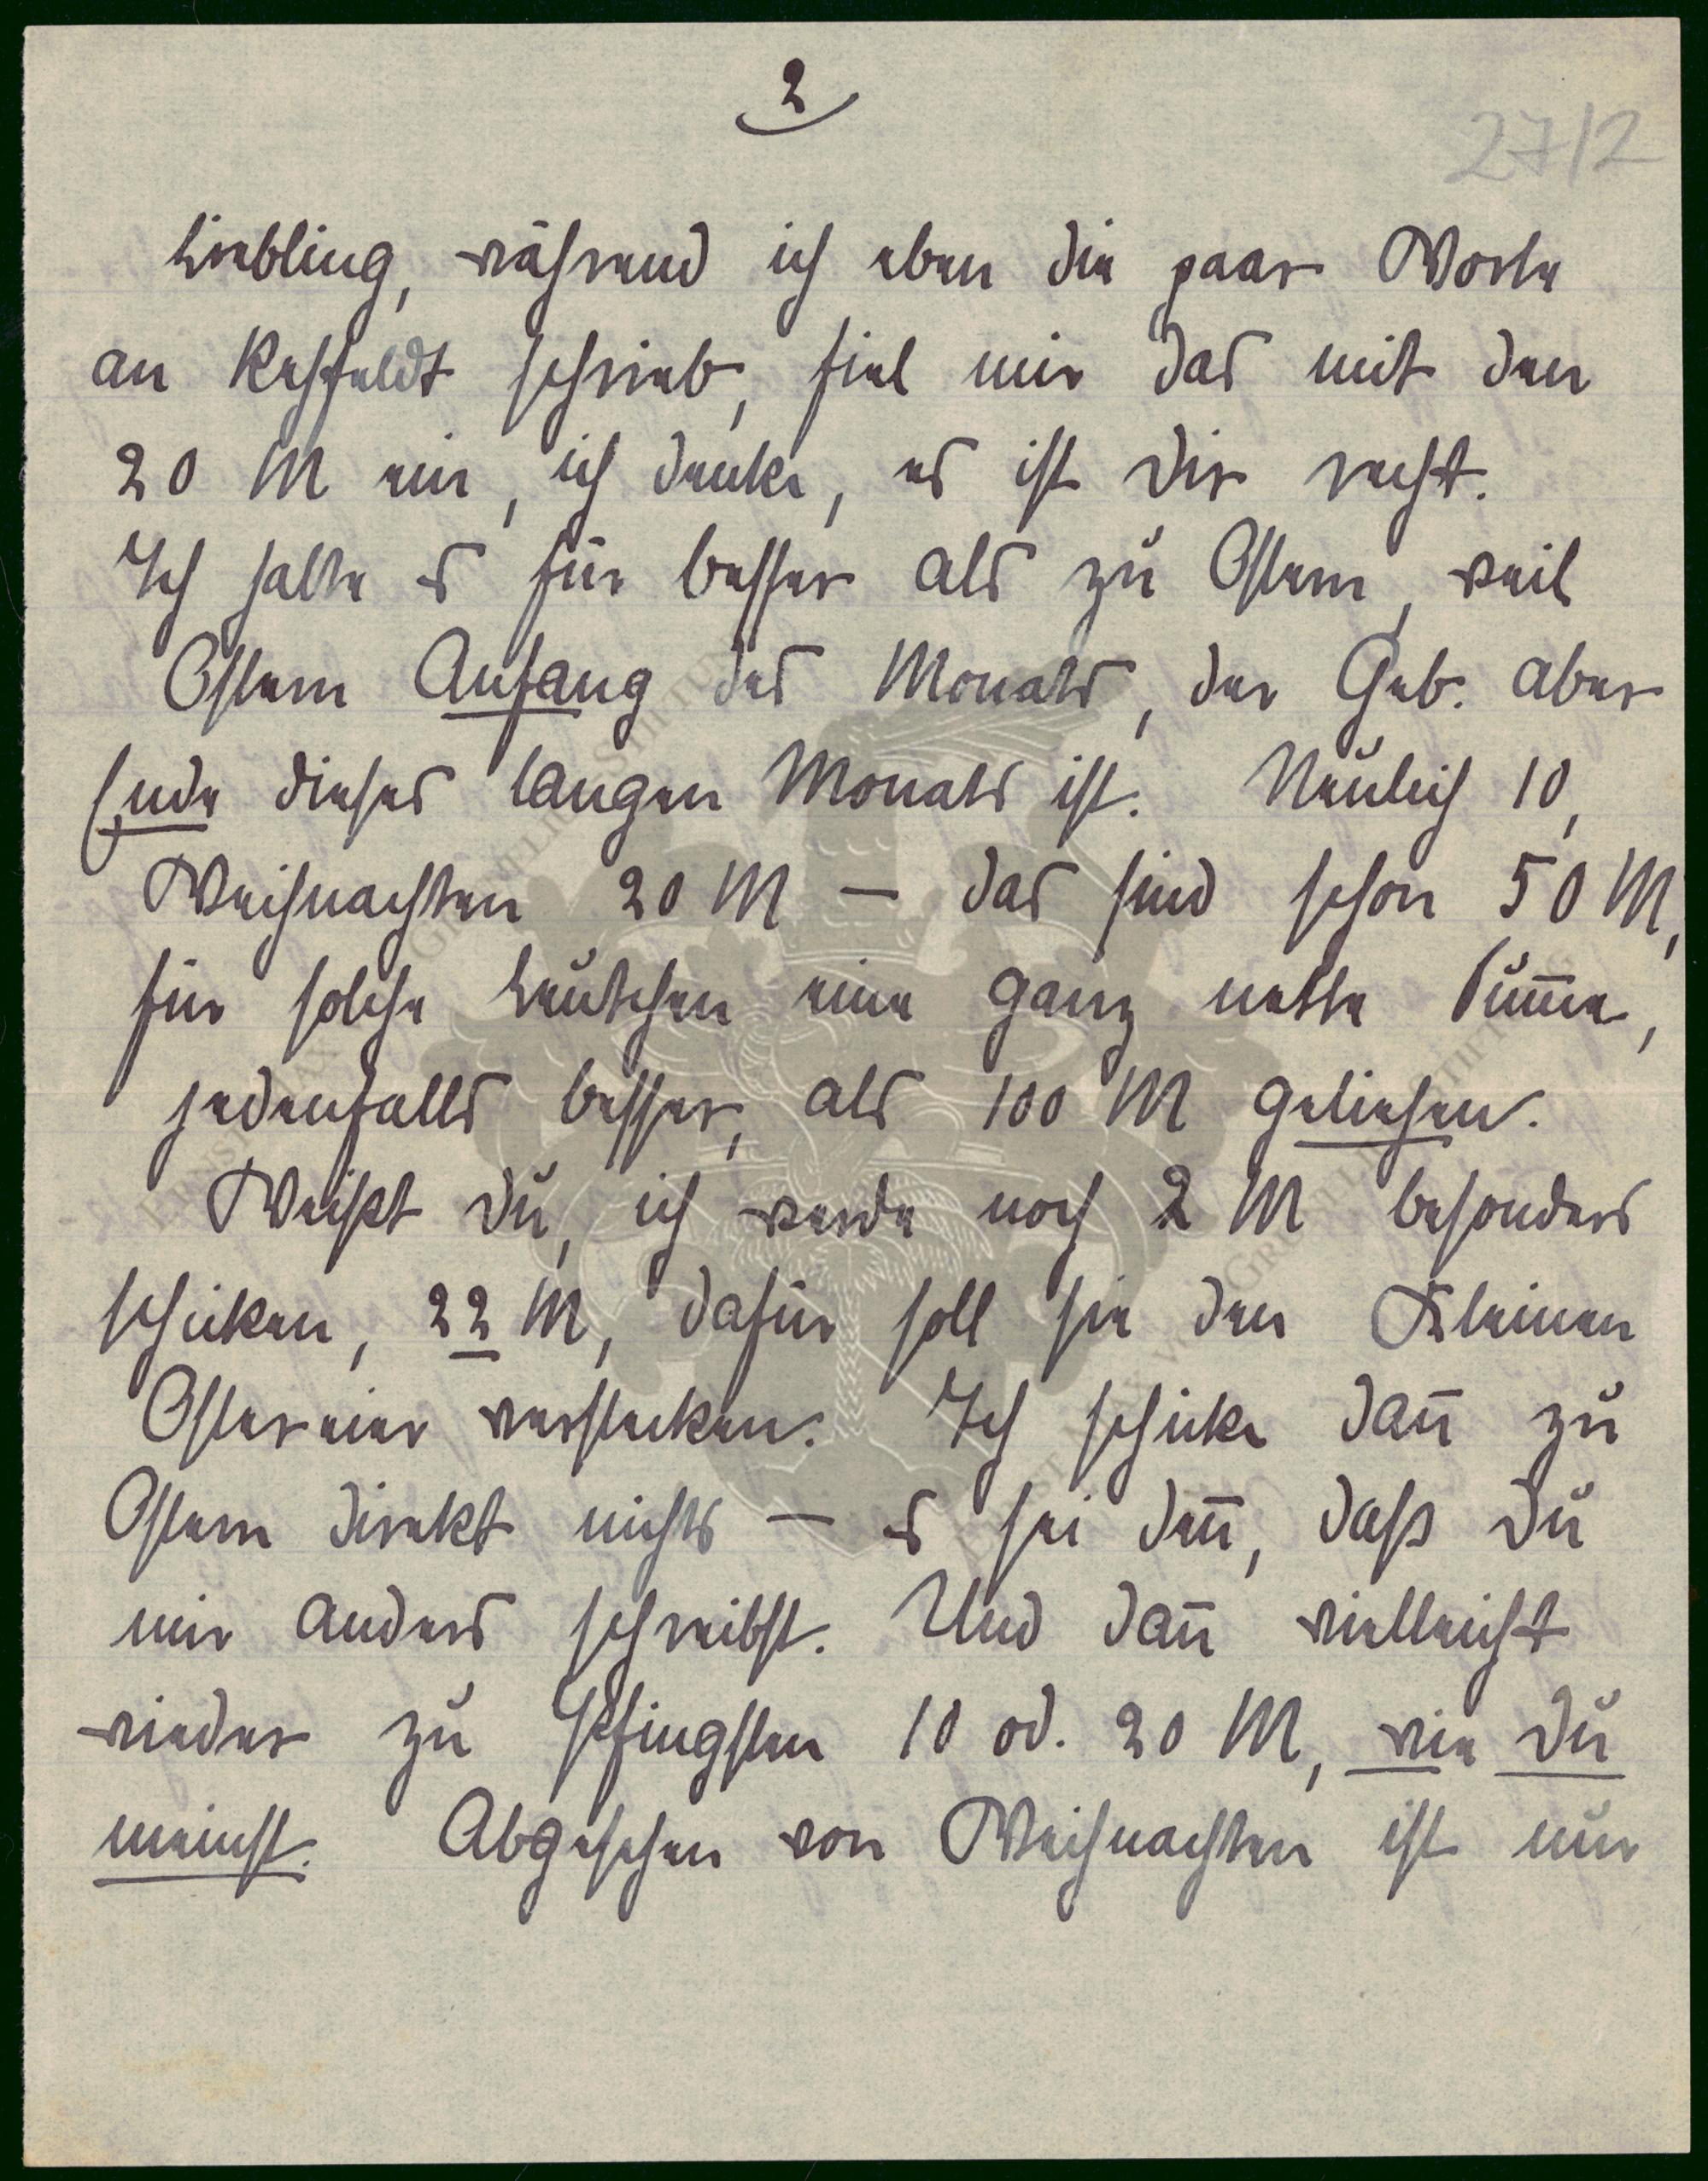 2
27/2
Liebling, während ich eben die paar Worte
an Rehfeldt schrieb, fiel mir das mit den
20 M ein, ich denke, es ist Dir recht.
Ich halte es für besser als zu Ostern, weil
Ostern Anfang des Monats, der Geb. aber
Ende dieses langen Monats ist. Neulich 10,
Weihnachten 20 M – das sind schon 50 M,
für solche Leutchen eine ganz nette Sum̅e,
jedenfalls besser, als 100 M geliehen.
Weißt Du, ich werde noch 2 M besonders
schicken, 22 M, dafür soll sie den Kleinen
Ostereier verstecken. Ich schicke dan̅ zu
Ostern direkt nichts – es sei den̅, daß Du
mir anders schreibst. Und dan̅ vielleicht
wieder zu Pfingsten 10 od. 20 M, wie Du
meinst. Abgesehen von Weihnachten ist nur